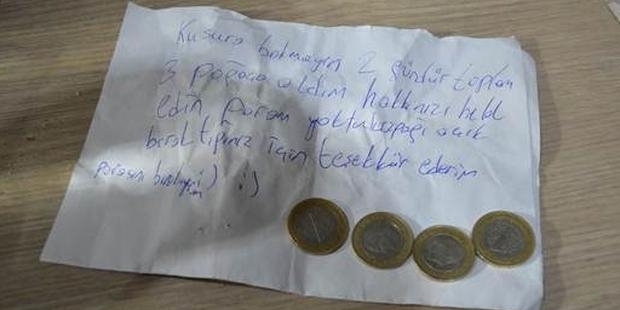 Kusura bakmayın 2 gündür toplam
3 poğaça aldım hakkınızı helal
edin param yoktu kapağı açık
bıraktığınız için teşekkür ederim
parasını bırakıyorum :) :)